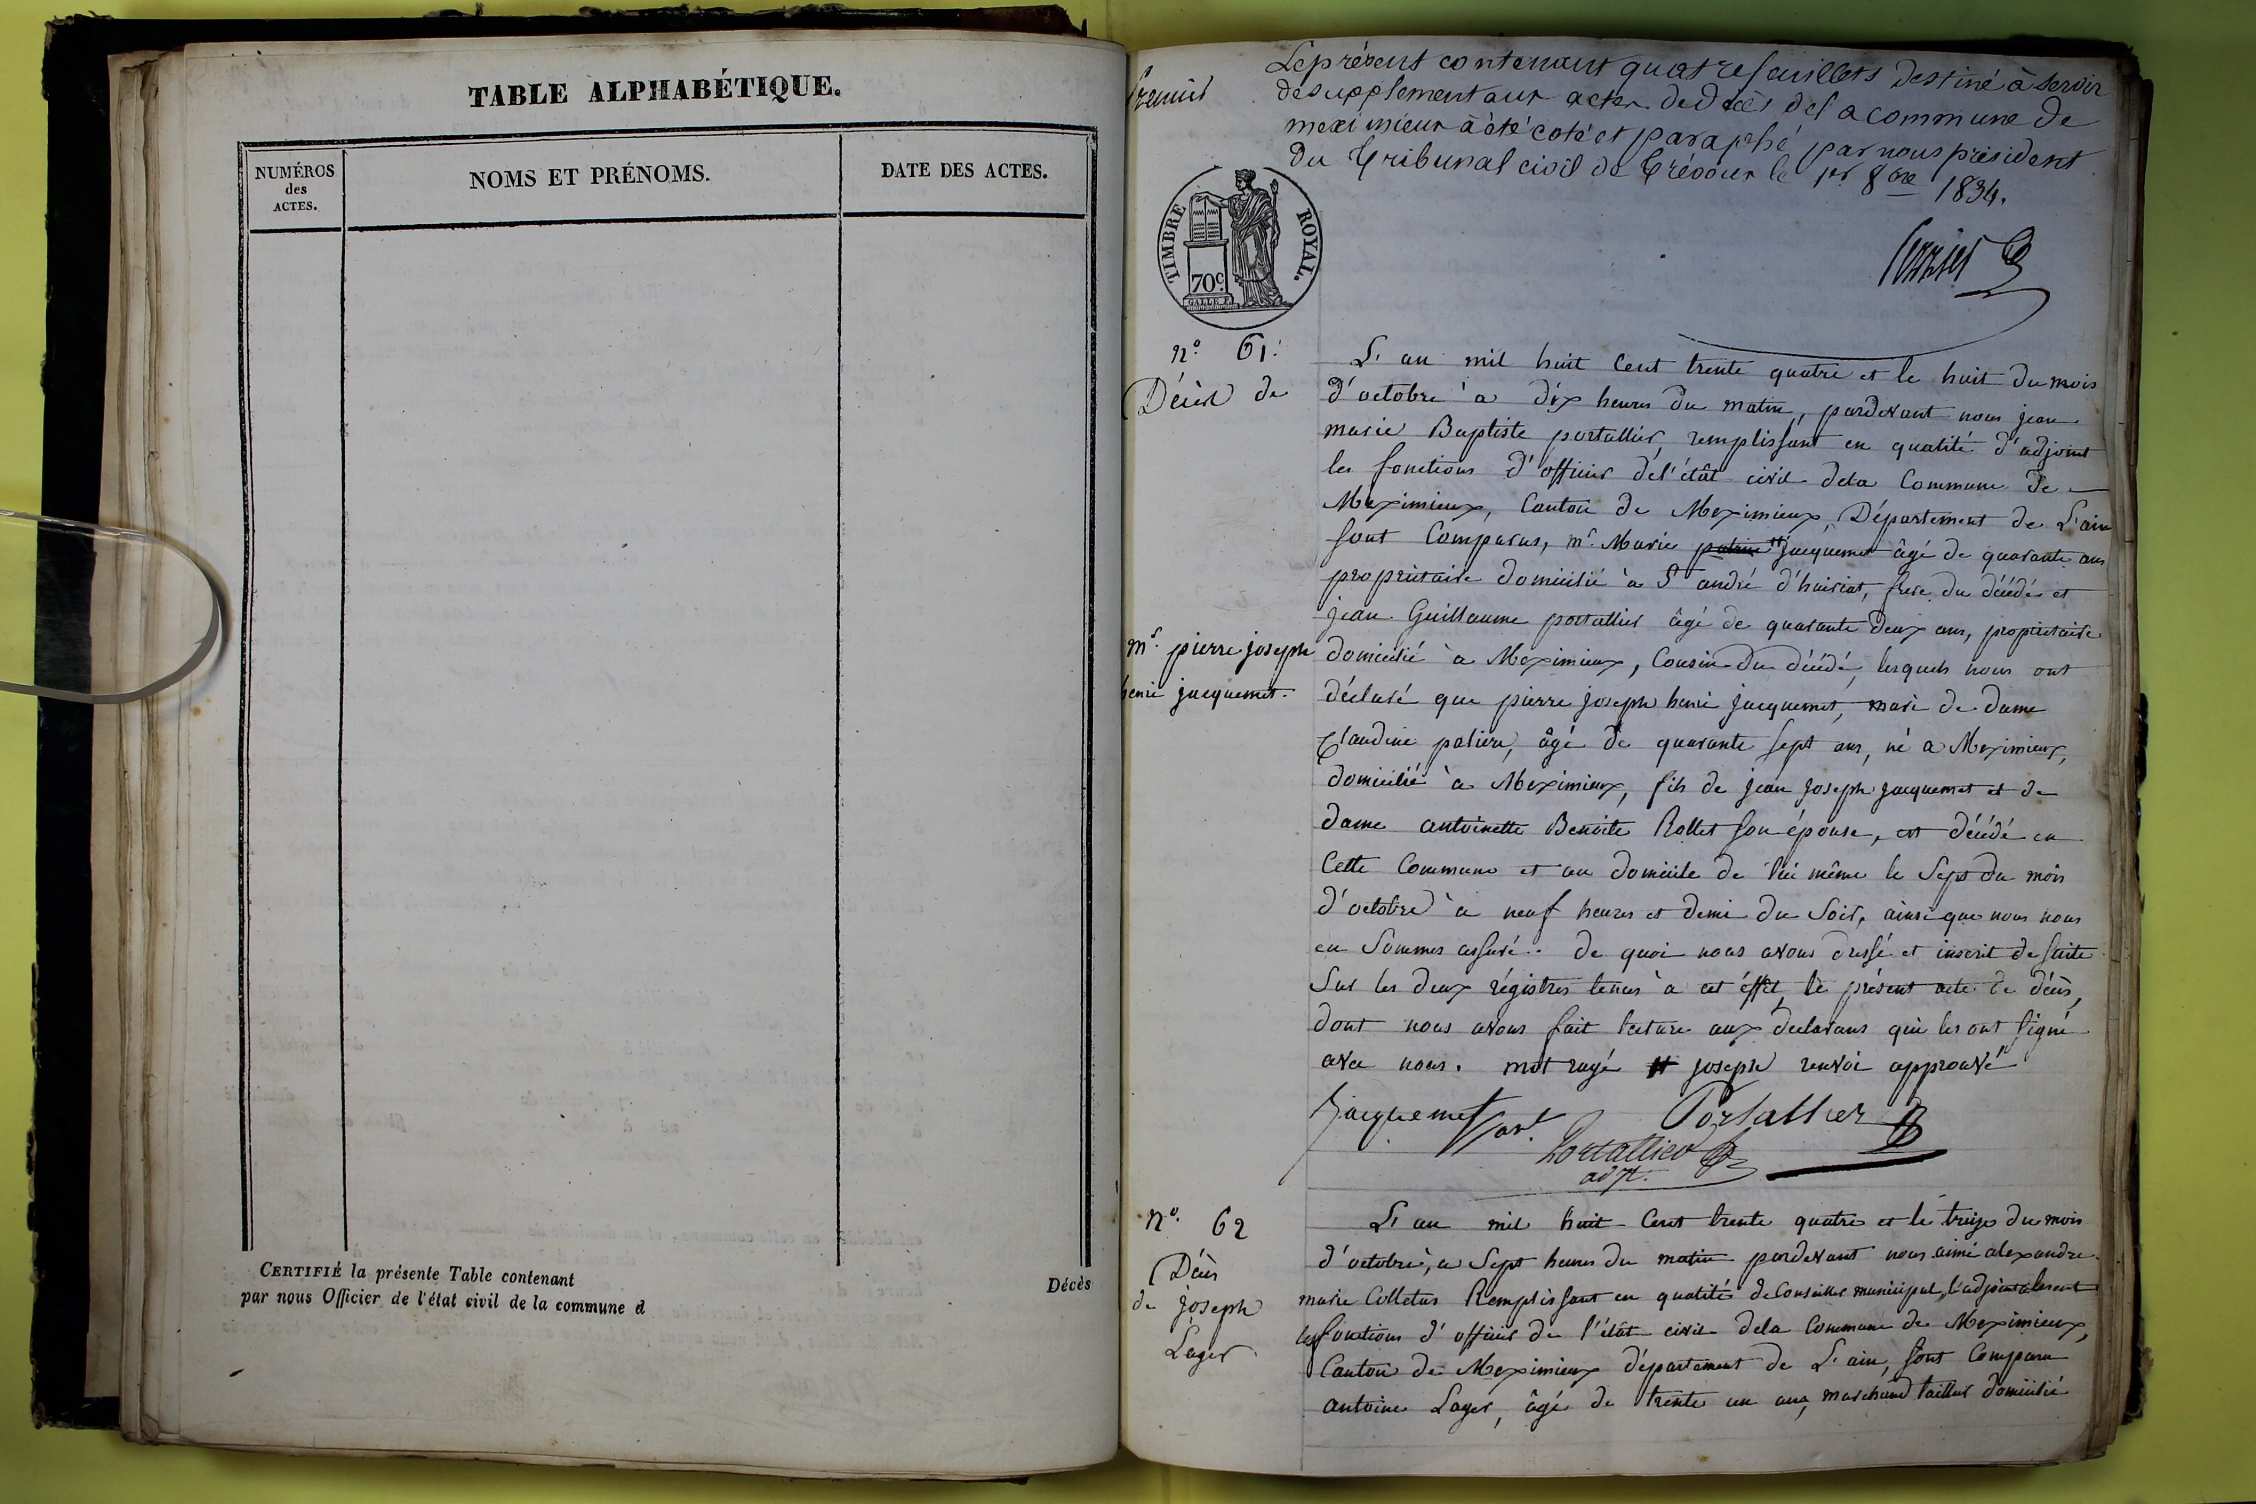 TABLE ALPHABÉTIQUE.
NUMÉROS
des
ACTES.
NOMS ET PRÉNOMS.
DATE DES ACTES.
CERTIFIÉ la présente Table contenant
par nous Officier de l'état civil de la commune d
Décès
Premier
Le présent contenant quatre feuillets destiné à servir
de supplement aux actes de décès de la commune de
meximieux à été coté et paraphé par nous président
du tribunal civil de trévoux le 1er 8bre 1834.
TIMBRE ROYAL.
70c.
n°. 61.
Décès de
mr. pierre joseph
henri jacquemet.
L'an mil huit cent trente quatre et le huit du mois
d'octobre à dix heures du matin, pardevant nous jean
marie Baptiste portallier, remplissant en qualité d'adjoint
les fonctions d'officier de l'étât civil dela Commune de
Meximieux, Canton de Meximieux, Département de L'ain
sont Comparus, mr. Marie jacquemet âgé de quarante ans
propriétaire domicilié à St andré d'huiriat, frère du décédé et
jean Guillaume portallier âgé de quarante deux ans, propriétaire
domicilié à Meximieux, Cousin du décédé, lesquels nous ont
déclaré que pierre joseph henri jacquemet, mari de dame
Claudine, âgé de quarante sept ans, né a Meximieux,
domicilié à Meximieux, fils de jean joseph jacquemet et de
dame antoinette Benoite Rollet son épouse, est décédé en
Cette Commune et au domicile de lui même le Sept du mois
d'octobre à neuf heures et demi du Soir, ainsi que nous nous
en Sommes assuré. de quoi nous avons dressé et inscrit de suite
Sur les deux régistres tenus à cet éffet, le présent acte de décès,
dont nous avons fait lecture aux declarans qui les ont signé
avec nous. mot rayé joseph renvoi approuvé
Jacquemet Portallier
Portallier
adjt.
n°. 62
Décès
de joseph
Lager
L'an mil huit Cent trente quatre et le treize du mois
d'octobre, a Sept heures du matin pardevant nous aimé alexandre
marie Colletus Remplissant en qualité de Conseiller municipal, l'adjoint absent
les fonctions d'officier de l'étât civil dela Commune de Meximieux,
Canton de Meximieux département de L'ain, sont Comparu
antoine Lager, âgé de trente un ans, marchand tailleur domicilié